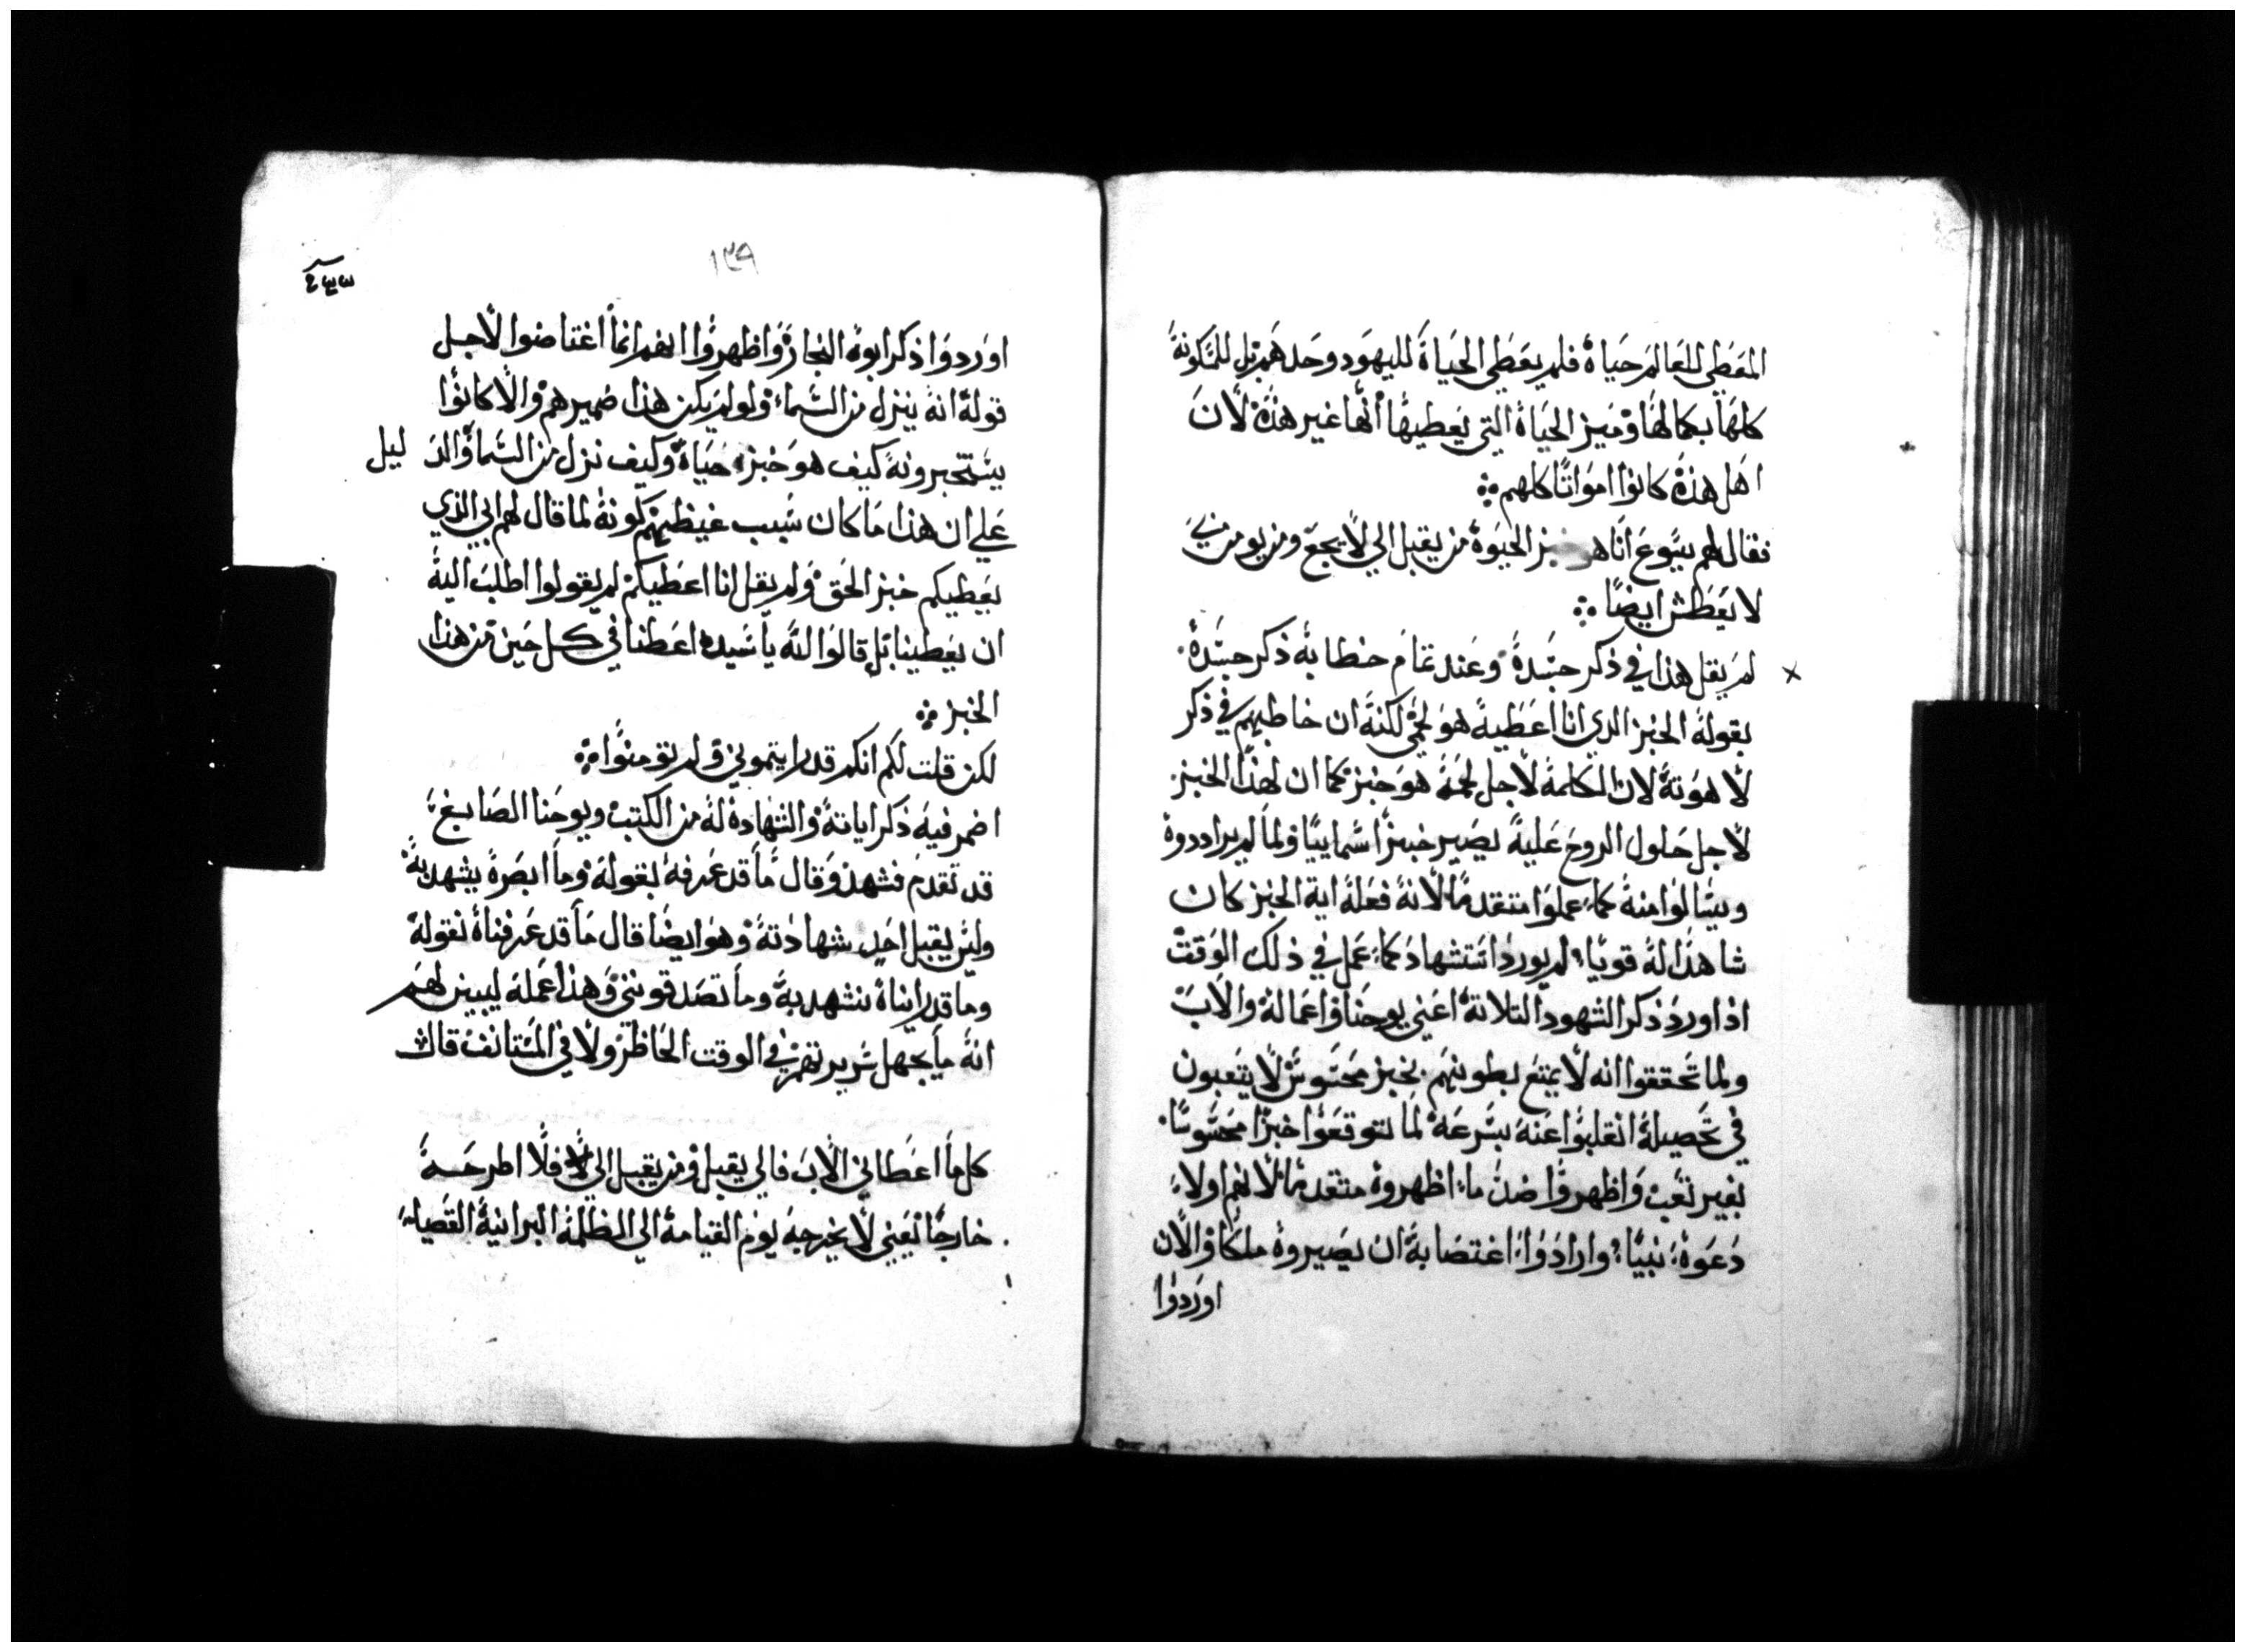 المعطي للعالم حياة فلم يعطي الحياة لليهود وحدهم بل للمسكونة
كلها بكمالها وميز الحياة التي يعطيها انها غير هذه لان
اهل هذه كانوا امواتا كلهم
فقال لهم يسوع انا هو خبز الحيوة من يقبل الي لا يجع ومن يومن بي
لا يعطش ايضا
لم يقل هذا في ذكر جسده وعند تمام خطابه ذكر جسده
بقوله الخبز الدي انا اعطيه هو لحمي لكنه ان خاطبهم في ذكر
لاهوته لان الكلمة لاجل لحمه هو خبز كما ان لهذا الخبز
لاجل حلول الروح عليه يصير خبزا سماييا ولما لم يراددوه
ويسالوا منه كما عملوا متقدما لانه فعله اية الخبز كان
شاهدا له قويا لم يورد استشهاد كما عمل في ذلك الوقت
اذ اورد ذكر الشهود التلاتة اعني يوحنا واعماله والاب
ولما تحققوا انه لا يمتع بطونهم بخبز محسوس لا يتعبون
في تحصيله انقلبوا عنه بسرعة لما توقعوا خبزا محسوسا
بغير تعب واظهروا ضد ما اظهروه متقدما لانهم اولا
دعوه نبيا وارادوا اغتصابه ان يصيروه ملكا والان
اوردوا
١٣٩
اوردوا ذكر ابوه النجار واظهروا انهم انما اغتاضوا لاجل
قوله انه ينزل من السماء ولو لم يكن هذا ضميرهم والا كانوا
يستخبرونه كيف هو خبز حياة وكيف نزل من السما والد ليل
علي ان هذا ما كان سبب غيظهم كونه لما قال لهم ابي الذي
يعطيكم خبز الحق ولم يقل انا اعطيكم لم يقولوا اطلب اليه
ان يعطينا بل قالوا له يا سيده اعطنا في كل حين من هذا
الخبز
لكن قلت لكم انكم قد رايتموني ولم تومنوا
اضمر فيه ذكر اياته والشهادة له من الكتب ويوحنا الصابغ
قد تقدم فشهد وقال ما قد عرفه بقوله وما ابصره يشهد به
وليس يقبل احد شهادته وهو ايضا قال ما قد عرفناه نقوله
وما قد رايناه نشهد به وما تصدقونني وهذا عمله ليبين لهم
انه ما يجهل سريرتهم في الوقت الحاظر ولا في المستانف قال
كل ما اعطاني الاب فالي يقبل ومن يقبل الي فلا اطرحه
خارجا يعني لا يخرجه يوم القيامة الي الظلمة البرانية القصيا